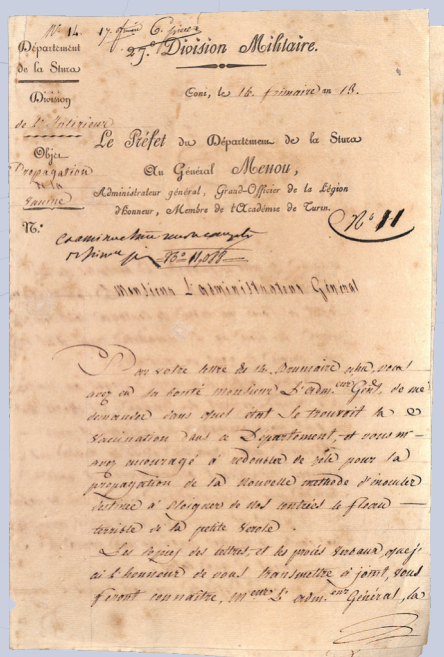 Nº 14.
17.
27.e Division Militaire.
Département
de la Stura
Coni, le 16. frimaire an 13.
Division
de l'Intérieur
Le Préfet du Département de la Stura
Objet
Au Général Menou,
Propagation
de la
Administrateur général, Grand-Officier de la Légion
Vaccine
d'honneur, Membre de l'Académie de Turin.
N.º
Nº 11
Monsieur L'administrateur Général
Par votre lettre du Brumaire vous
avez eu la bonté monsieur L'adm.eur Genl. de me
demander dans quel état se trouvoit la
vaccination dans ce Département, et vous m'
avez encouragé à redoubler de zèle pour la
propagation de la nouvelle méthode d'inoculer
destinée à éloigner de nos contrées le fleau
terrible de la petite verole.
Les copies des lettres, et les procès verbaux, que j'
ai l'honneur de vous transmettre ci joint, vous
feront connaître, m.eur L'adm.eur Général, la